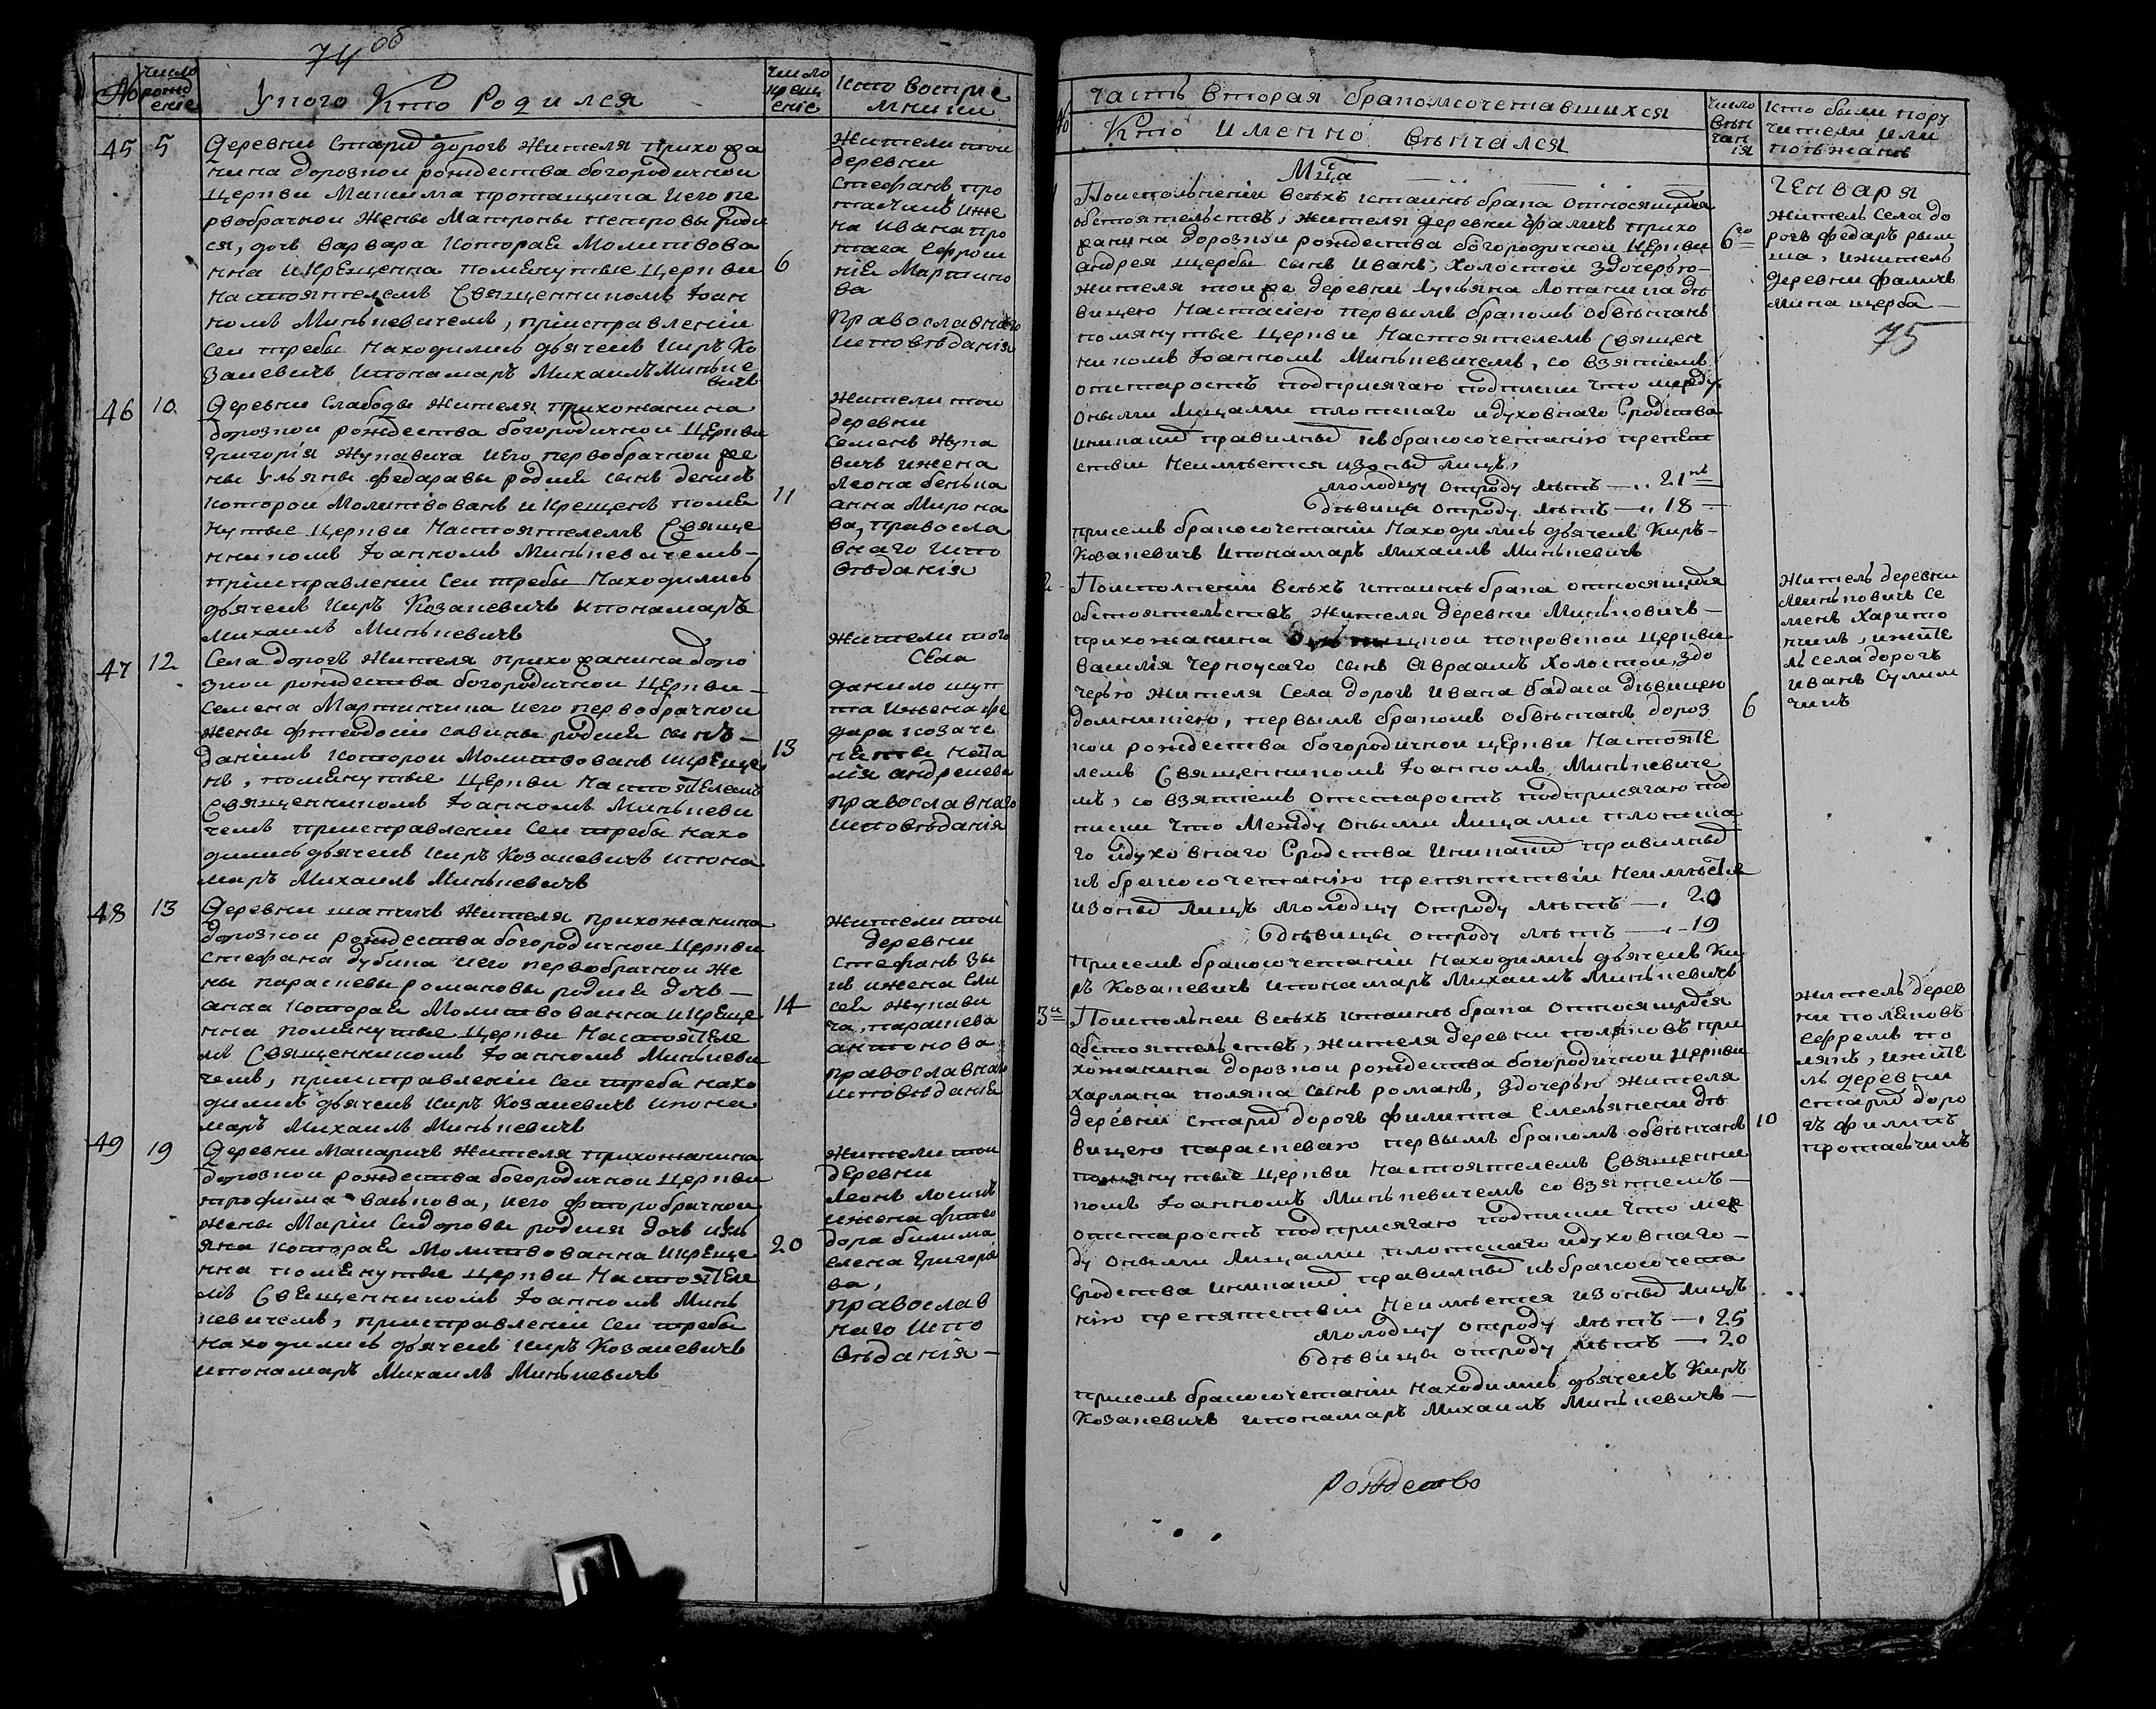 74 об
№
число рожденіе
У кого Кто Родился
число крещеніе
Кто Воспріемники
45
5
Деревни Старıд дорогъ Жителя прихожа
нина дорозкои рождества богородичнои
Церкви Максима
и его пе
рвобрачнои Жены Матроны петровы роди
ся, дочь Варвара Которая Молитвова
нна и Крещенна помянутые Церкви
Настоятелемъ Священникомъ Іоан
номъ Минькевичемъ, при исправленіи
сеи требы Находились дьячекъ Киръ Ко
закевичъ и понамаръ Михаилъ Минькевичъ
6
Жители тои
деревни
Стефанъ про
и же
на Ивана про
Ефроси
нія Мартино
ва
Православного
исповѣданія
46
10
Деревни Слабоды Жителя прихожанина
дорозкои рождества богородичнои Церкви
Григорія Жукавича и его первобрачнои же
ны Ульяны Федаравы родися сынъ денисъ
которои Молитвованъ и Крещенъ помя
нутые Церкви Настоятелемъ Свяще
нникомъ Іоанномъ Минькевичемъ —
при исправленіи Сеи требы Находились
дьячекъ Киръ Козакевичъ и понамаръ
Михаилъ Минькевичъ
11
Жители тои
деревни
Семенъ Жука
вичъ и жена
Леона бенька
анна Мирона
ва, правосла
внаго испо
вѣданія
47
12
Села дорогъ Жителя прихожанина доро
зкои рождества богородичнои Церкви —
Семена Мартинчика и его первобрачнои
Жены Феодосіи Савины родися сынъ —
Даніилъ Которои Молитвованъ и Креще
нъ, помянутые Церкви Настоятелемъ
Священникомъ Іоанномъ Минькеви
чемъ при исправленіи Сеи требы нахо
дились дьячекъ Киръ Козакевичъ и пона
маръ Михаилъ Минькевичъ
13
Жители того
Села
данило шуп
та и Жена фе
дара козаче
Ната
лія андреева
Православнаго
исповѣданія
48
13
Деревни шапчичъ Жителя прихожанина
дорозкои рождества богородичнои Церкви
Стефана дубика и его первобрачнои Же
ны параскевы романовы родися дочь —
анна Которая Молитвованна и Креще
нна помянутые Церкви Настоятеле
мъ Священникомъ Іоанномъ Минькеви
чемъ, при исправленіи Сеи треба нахо
дились дьячекъ Киръ Козакевичъ и пона
маръ Михаилъ Минькевичъ
14
Жители тои
деревни
Стефанъ Зы
къ и жена Ели
сея Жукави
ча, параскева
антонова
православнаго
исповѣданія
49
19
Деревни Макаричъ Жителя прихожанина
дорозкои рождества богородичнои Церкви
трофима Валькова, и его фторобрачнои
Жены Маріи Сидоровы родися дочь Уль
яна Которая Молитвованна и Креще
нна помянутые Церкви Настоятеле
мъ Священникомъ Іоанномъ Минь
кевичемъ, при исправленіи Сеи требы
находились дьячекъ Киръ Козакевичъ
и понамаръ Михаилъ Минькевичъ
20
Жители тои
деревни
Леонъ лосикъ
и жена
дора
елена Григорье
ва,
православ
наго испо
вѣданія —
Часть Вторая бракомсочетавшихся
№
Кто Именно Вѣнчался
число Вѣнчанія
Кто были поручители или поѣжане
Мца
Генваря
1
По исполненіи Всѣхъ истинъ брака относящıдся
обстоятельствъ, жителя деревни Фаличъ прихо
жанина дорозкои рождества богородичнои Церкви
андрея щербы сынъ Иванъ, холостои з дочерью —
жителя тои же деревни Лукьяна Лопаника дѣ
вицею Настасіею первымъ бракомъ обвѣнчанъ
помянутые Церкви Настоятелемъ Священ
никомъ Іоанномъ Минькевичемъ, со взятіемъ
отстаростъ подприсягаю подписки что между
оными Лицами плотскаго и духовнаго Сродства
и никакıд правильныд къ бракосочетанію препят
ствіи Неимѣется изоныд лицъ,
молодцу отроду лѣтъ — 21
дѣвицы отроду лѣтъ — 18
при семъ бракосочетаніи Находились дьячекъ Киръ —
Козакевичъ и понамаръ Михаилъ Минькевичъ
6го
Житель Села до
рогъ федаръ рым
ша, и житель
деревни фаличъ
Мина щерба —
75
2
По исполненіи Всѣхъ истинъ брака относящıдся
обстоятельствъ Жителя деревни Миньковичъ —
прихожанина
покровскои Церкви
Василія Черноусаго сынъ Авраамъ Холостои, з до
черью жителя Села дорогъ Ивана бадака дѣвицею
домникіею, первымъ бракомъ обвѣнчанъ дороз
кои рождества богородичнои церкви Настояте
лемъ Священникомъ Іоанномъ Минькевиче
мъ, со взятіемъ отстаростъ подприсягаю под
писки что Между оными Лицами плотска
го и духовнаго Сродства и никакıд правильныд
къ бракосочетанію препятствіи Неимѣется
изоныд Лицъ молодцу отроду лѣтъ — 20
дѣвицы отроду лѣтъ — 19
При семъ бракосочетаніи Находились дьячекъ Ки
ръ Козакевичъ и понамаръ Михаилъ Минькевичъ
6
Житель деревни
Миньковичъ Се
менъ Харито
нчикъ, и жите
ль села дорогъ
Иванъ Сулим
чикъ
3й
По исполнен Всѣхъ истинъ брака относящıдся
обстоятельствъ, жителя деревни поляковъ при
хожанина дорозкои рождества богородичнои Церкви
Карлана поляка сынъ романъ, з дочерью жителя
деревни Старıд дорогъ филиппа Емельянени дѣ
вицею параскеваю первымъ бракомъ обвѣнчанъ
помянутые Церкви Настоятелемъ Священни
комъ Іоанномъ Минькевичемъ со взятіемъ —
отстаростъ подприсягаю подписки что меж
ду оными Лицами плотскаго и духовнаго —
сродства и никакıд правильныд къ бракосочета
нію препятствіи Неимѣется изоныд лицъ
молодцу отроду лѣтъ — 25
дѣвицы отроду лѣтъ — 20
при семъ бракосочетаніи находились дьячекъ Киръ
Козакевичъ и понамаръ Михаилъ Минькевичъ —
10
Житель дерев
ни поляковъ
Ефремъ по
лякъ, и жите
ль деревни
Старıд доро
гъ филипъ
протасьчикъ
рождество